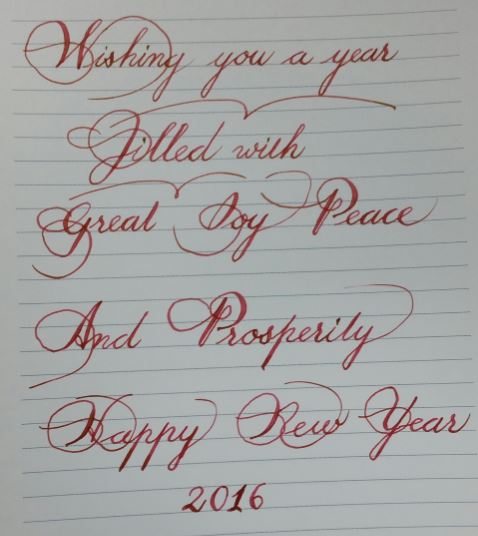 Wishing you a year
Filled with
Great Joy Peace
And Prosperity
Happy New Year
2016